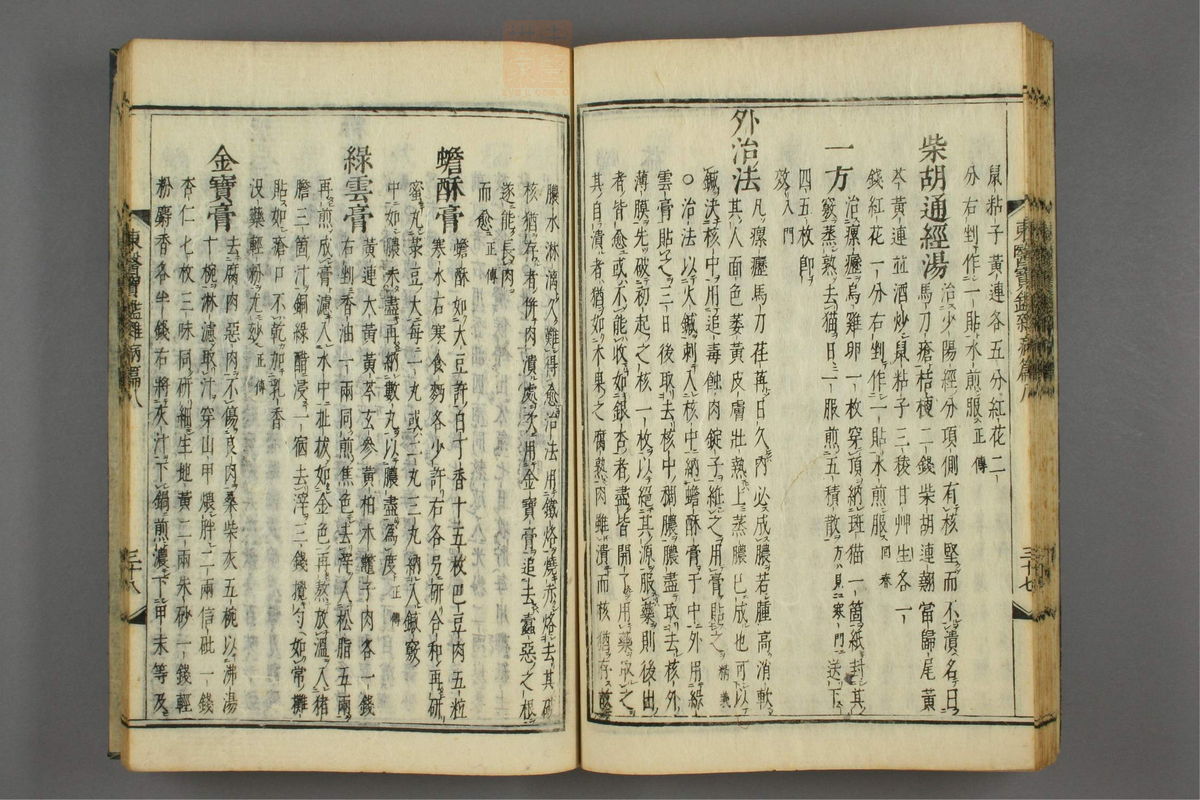 鼠粘子黃連各五分紅花二
分右剉作一貼水煎服正傳
柴胡通經湯治少陽經分項側有核堅而不潰名曰
馬刀瘡桔梗二錢柴胡連翹當歸尾黃
芩黃連並酒炒鼠粘子三稜甘艸生各一
錢紅花一分右剉作一貼水煎服同春
一方治瘰癧烏雞卵一枚穿頂納斑猫一箇紙封其
竅蒸熟去猫日一服煎五積散方見寒門送下
四五枚即
效入門
外治法凡瘰癧馬刀荏苒日久內必成膿若腫高消軟
其人面色萎黃皮膚壯熱上蒸膿已成也可以
鍼決核中用追毒蝕肉錠子紙之用膏貼之精義
○治法以火鍼刺入核中納蟾酥膏于中外用綠
雲膏貼之三日後取去核中稠膿膿盡取去核外
薄膜先破初起之核一枚以絕其源服藥則後出
者皆愈或不能收如銀杏者盡皆開了用藥取之
其自潰者猶如木果之腐熟肉雖潰而核猶存故
東醫寶鑑雜病篇八
三十七
膿水淋漓久難得愈治法用鐵烙燒赤烙去其破
核猶存者併肉潰處次用金寶膏追去蠧惡之根
遂能長肉
而愈正傳
蟾酥膏蟾酥如大豆許白丁香十五枚巴豆肉五粒
寒水石寒食麪各少許右各另研合和再研
蜜丸菉豆大每一丸或二丸三丸納入鍼竅
中如膿未盡再納數丸以膿盡爲度正傳
綠雲膏黃連大黃黃芩玄參黃柏木鱉子肉各一錢
右剉香油一兩同煎焦色去滓入松脂五兩
再煎成膏濾入水中扯拔如金色再熬放溫入猪
膽三箇汁銅綠醋浸一宿去滓三錢攪勻如常攤
貼如瘡口不乾加乳香
沒藥輕粉尤玅正傳
金寶膏去腐肉惡肉不傷良肉桑柴灰五椀以沸湯
十椀淋濾取汁穿山甲煨胖二兩信砒一錢
杏仁七枚三味同研細生地黃二兩朱砂一錢輕
粉麝香各半錢右將灰汁下鍋煎濃下甲末等及
東醫寶鑑雜病篇八
三十八